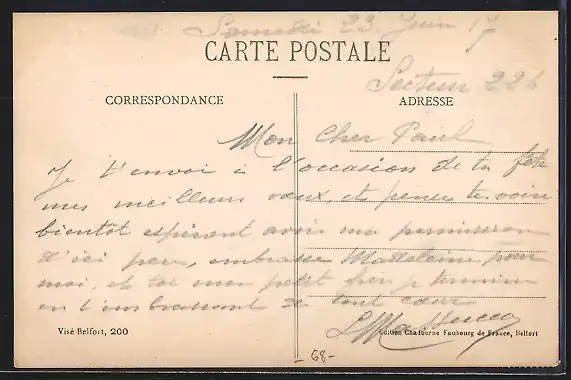 Samedi 23 Juin 17
CARTE POSTALE
Secteur 226
CORRESPONDANCE
ADRESSE
Mon Cher Paul
Je t'envoi à l'occasion de ta fête
mes meilleurs vœux, et pense te voire
bientot espérant avoir une permission
d'ici peu, embrasse Madeleine pour
moi, et toi mon petit frère je termine
en t'embrassant de tout cœur
Visé Belfort, 200
Edition Chadourne Faubourg de France, Belfort
68-